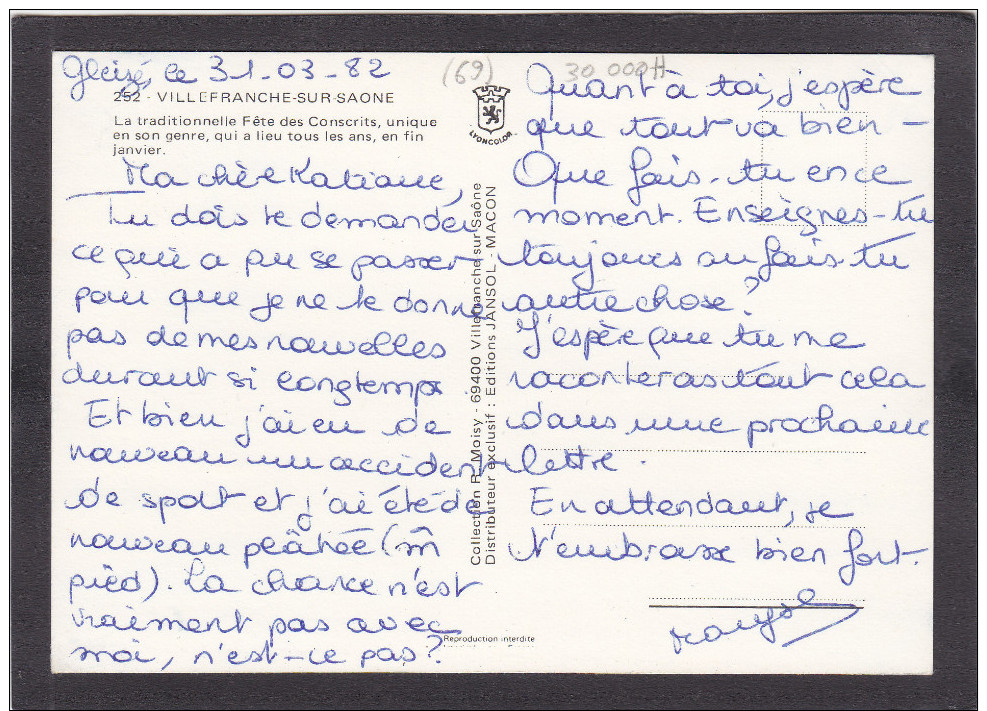 Gleizé, ce 31-03-82
(69)
30 000H
252 - VILLEFRANCHE-SUR-SAONE
La traditionnelle Fête des Conscrits, unique
en son genre, qui a lieu tous les ans, en fin
janvier.
LYONCOLOR
Ma chère Katiane,
Tu dois te demander
ce qui a pu se passer
pour que je ne te donne
pas de mes nouvelles
durant si longtemps.
Et bien j'ai eu de
nouveau un accident
de sport et j'ai été de
nouveau plâtrée (m̂
pied). La chance n'est
vraiment pas avec
moi, n'est-ce pas?
Collection R. Moisy - 69400 Villefranche sur Saône
Distributeur exclusif : Editions JANSOL - MACON
Reproduction interdite
Quant à toi, j'espère
que tout va bien -
Que fais-tu en ce
moment. Enseignes-tu
toujours ou fais-tu
autre chose?
J'espère que tu me
raconteras tout cela
dans une prochaine
lettre.
En attendant, je
t'embrasse bien fort.